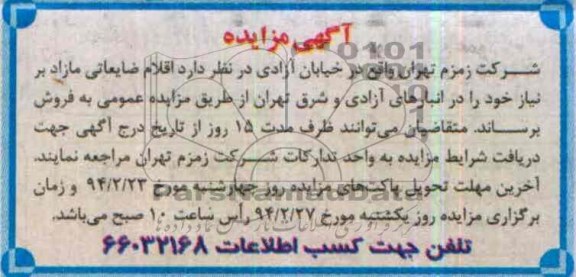 آگهی مزایده
شرکت زمزم تهران واقع در خیابان آزادی در نظر دارد اقلام ضایعاتی مازاد بر
نیاز خود را در انبارهای آزادی و شرق تهران از طریق مزایده عمومی به فروش
برساند. متقاضیان می‌توانند ظرف مدت ۱۵ روز از تاریخ درج آگهی جهت
دریافت شرایط مزایده به واحد تدارکات شرکت زمزم تهران مراجعه نمایند.
آخرین مهلت تحویل پاکت‌های مزایده روز چهارشنبه مورخ ۹۴/۲/۲۳ و زمان
برگزاری مزایده روز یکشنبه مورخ ۹۴/۲/۲۷ رأس ساعت ۱۰ صبح می‌باشد.
تلفن جهت کسب اطلاعات ۶۶۰۳۲۱۶۸
ParsNamadData